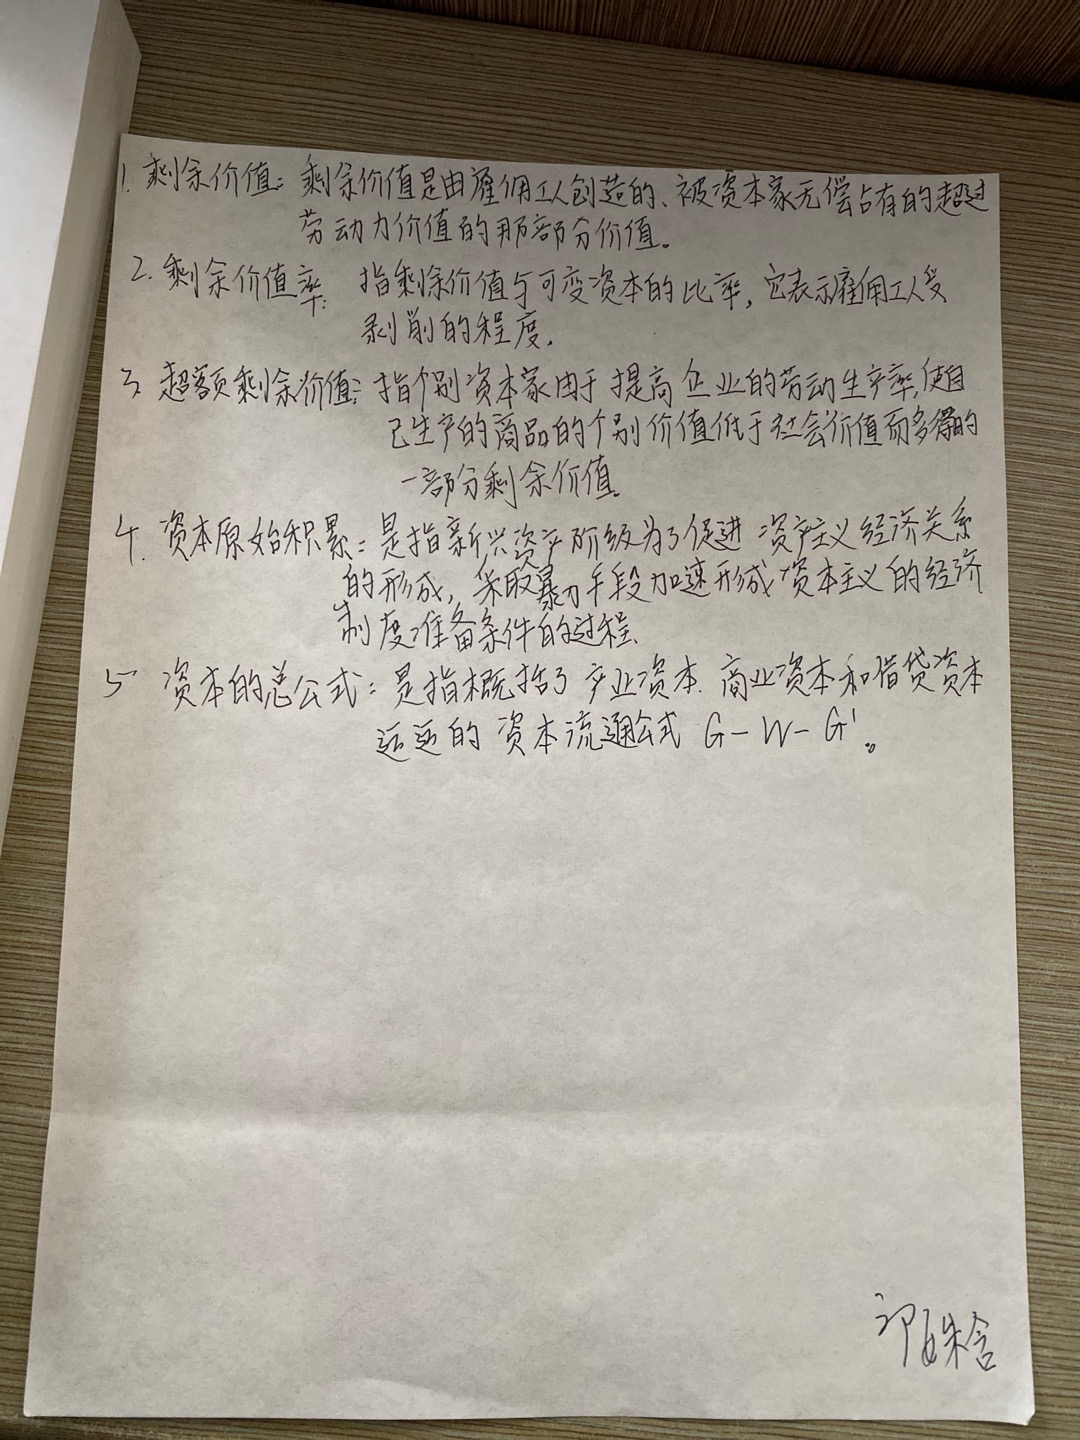 1. 剩余价值: 剩余价值是由雇佣工人创造的、被资本家无偿占有的超过
劳动力价值的那部分价值。
2. 剩余价值率: 指剩余价值与可变资本的比率,它表示雇佣工人受
剥削的程度.
3. 超额剩余价值: 指个别资本家由于提高企业的劳动生产率,使自
己生产的商品的个别价值低于社会价值而多得的
一部分剩余价值。
4. 资本原始积累: 是指新兴资产阶级为了促进资产主义经济关系
的形成,采取暴力手段加速形成资本主义的经济
制度准备条件的过程.
5 资本的总公式: 是指概括了产业资本.商业资本和借贷资本
运运的资本流通公式 G-W-G'。